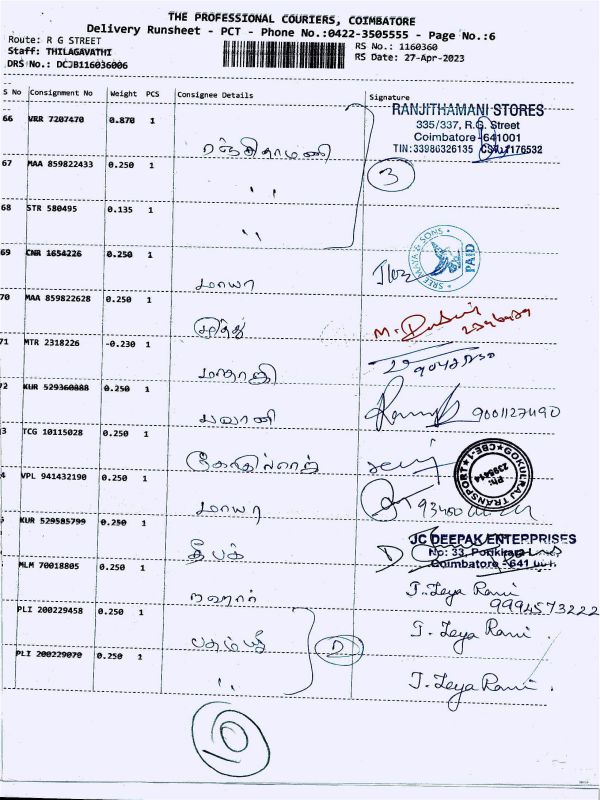 THE PROFESSIONAL COURIERS, COIMBATORE
Delivery Runsheet - PCT - Phone No.:0422-3505555 - Page No.:6
Route: R G STREET
Staff: THILAGAVATHI
DRS No.: DCJB116036006
RS No.: 1160360
RS Date: 27-Apr-2023
S No Consignment No Weight PCS Consignee Details Signature
66 VRR 7207470 0.870 1
ரஞ்சிதாமணி
RANJITHAMANI STORES
335/337, R.G. Street
Coimbatore - 641001
TIN:33986326135
67 MAA 859822433 0.250 1 " 3
68 STR 580495 0.135 1 "
69 CNR 1654226 0.250 1 மாயா
PAID
70 MAA 859822628 0.250 1
71 MTR 2318226 -0.230 1
72 KUR 529360888 0.250 1 பவானி
9001127490
3 TCG 10115028 0.250 1
GOKULRAJ TRANSPORT CBE-1
Ph: 2395414
4 VPL 941432190 0.250 1 மாயா
KUR 529585799 0.250 1 தீபக்
JC DEEPAK ENTERPRISES
Coimbatore - 641
MLM 70018805 0.250 1
T. Jeya Rani
9994573222
PLI 200229458 0.250 1
T. Jeya Rani.
PLI 200229070 0.250 1 "
T. Jeya Rani.
10